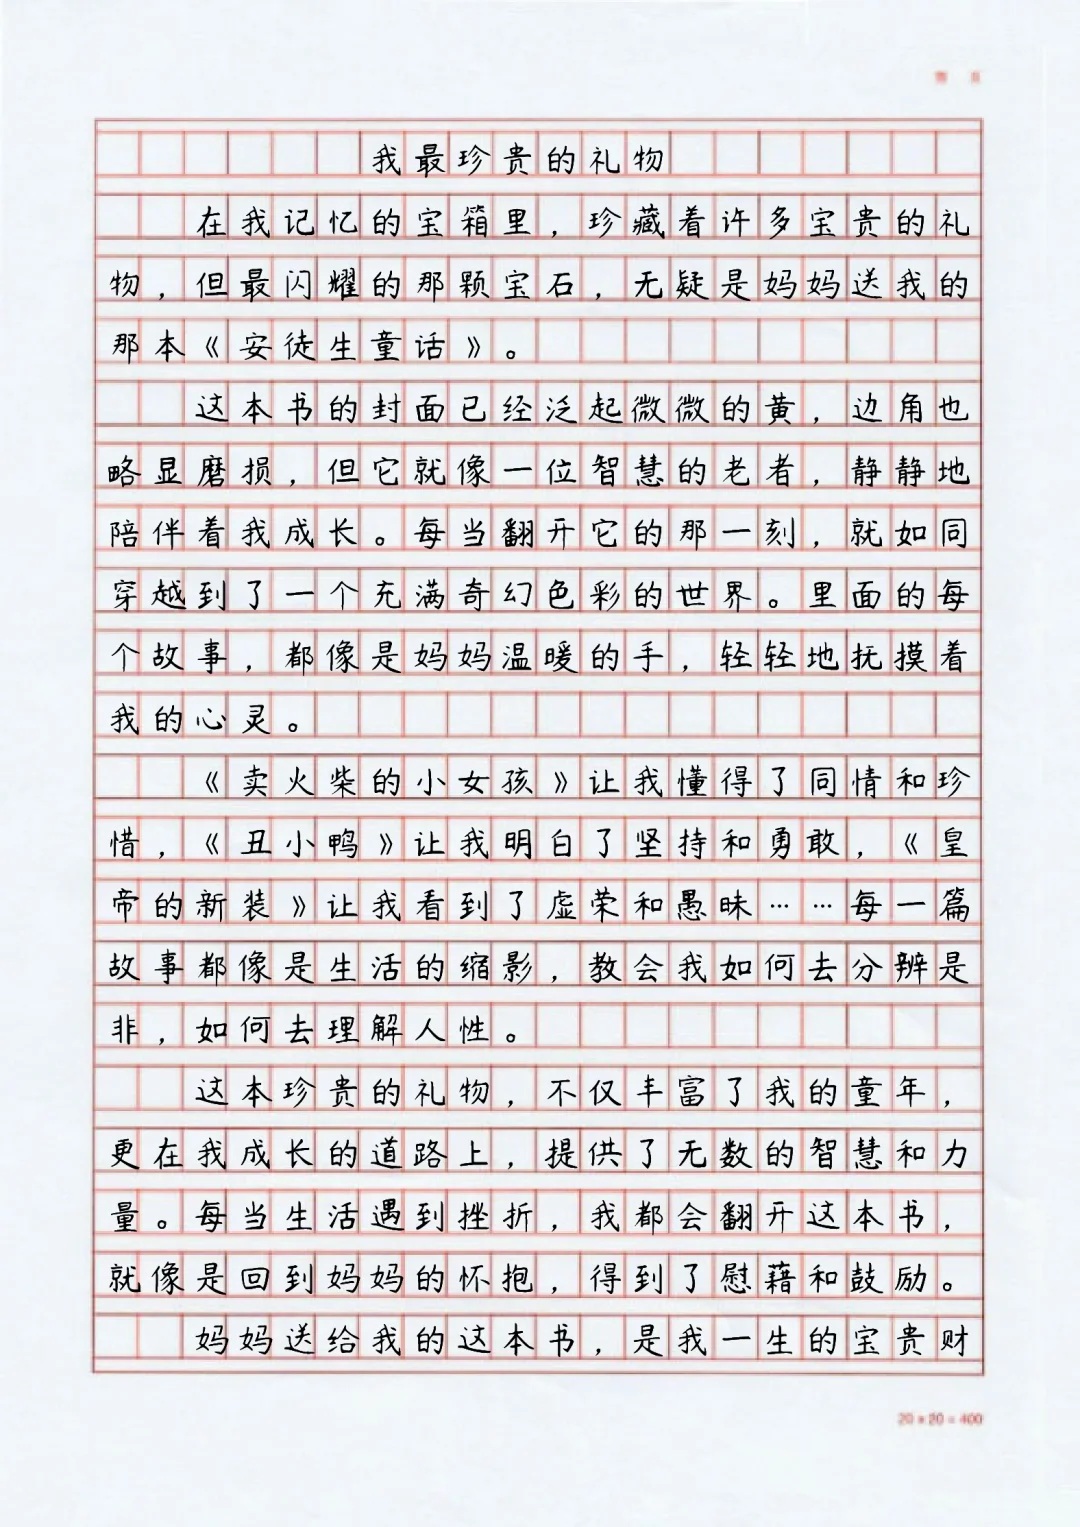 我最珍贵的礼物
在我记忆的宝箱里，珍藏着许多宝贵的礼
物，但最闪耀的那颗宝石，无疑是妈妈送我的
那本《安徒生童话》。
这本书的封面已经泛起微微的黄，边角也
略显磨损，但它就像一位智慧的老者，静静地
陪伴着我成长。每当翻开它的那一刻，就如同
穿越到了一个充满奇幻色彩的世界。里面的每
个故事，都像是妈妈温暖的手，轻轻地抚摸着
我的心灵。
《卖火柴的小女孩》让我懂得了同情和珍
惜，《丑小鸭》让我明白了坚持和勇敢，《皇
帝的新装》让我看到了虚荣和愚昧……每一篇
故事都像是生活的缩影，教会我如何去分辨是
非，如何去理解人性。
这本珍贵的礼物，不仅丰富了我的童年，
更在我成长的道路上，提供了无数的智慧和力
量。每当生活遇到挫折，我都会翻开这本书，
就像是回到妈妈的怀抱，得到了慰藉和鼓励。
妈妈送给我的这本书，是我一生的宝贵财
20×20=400